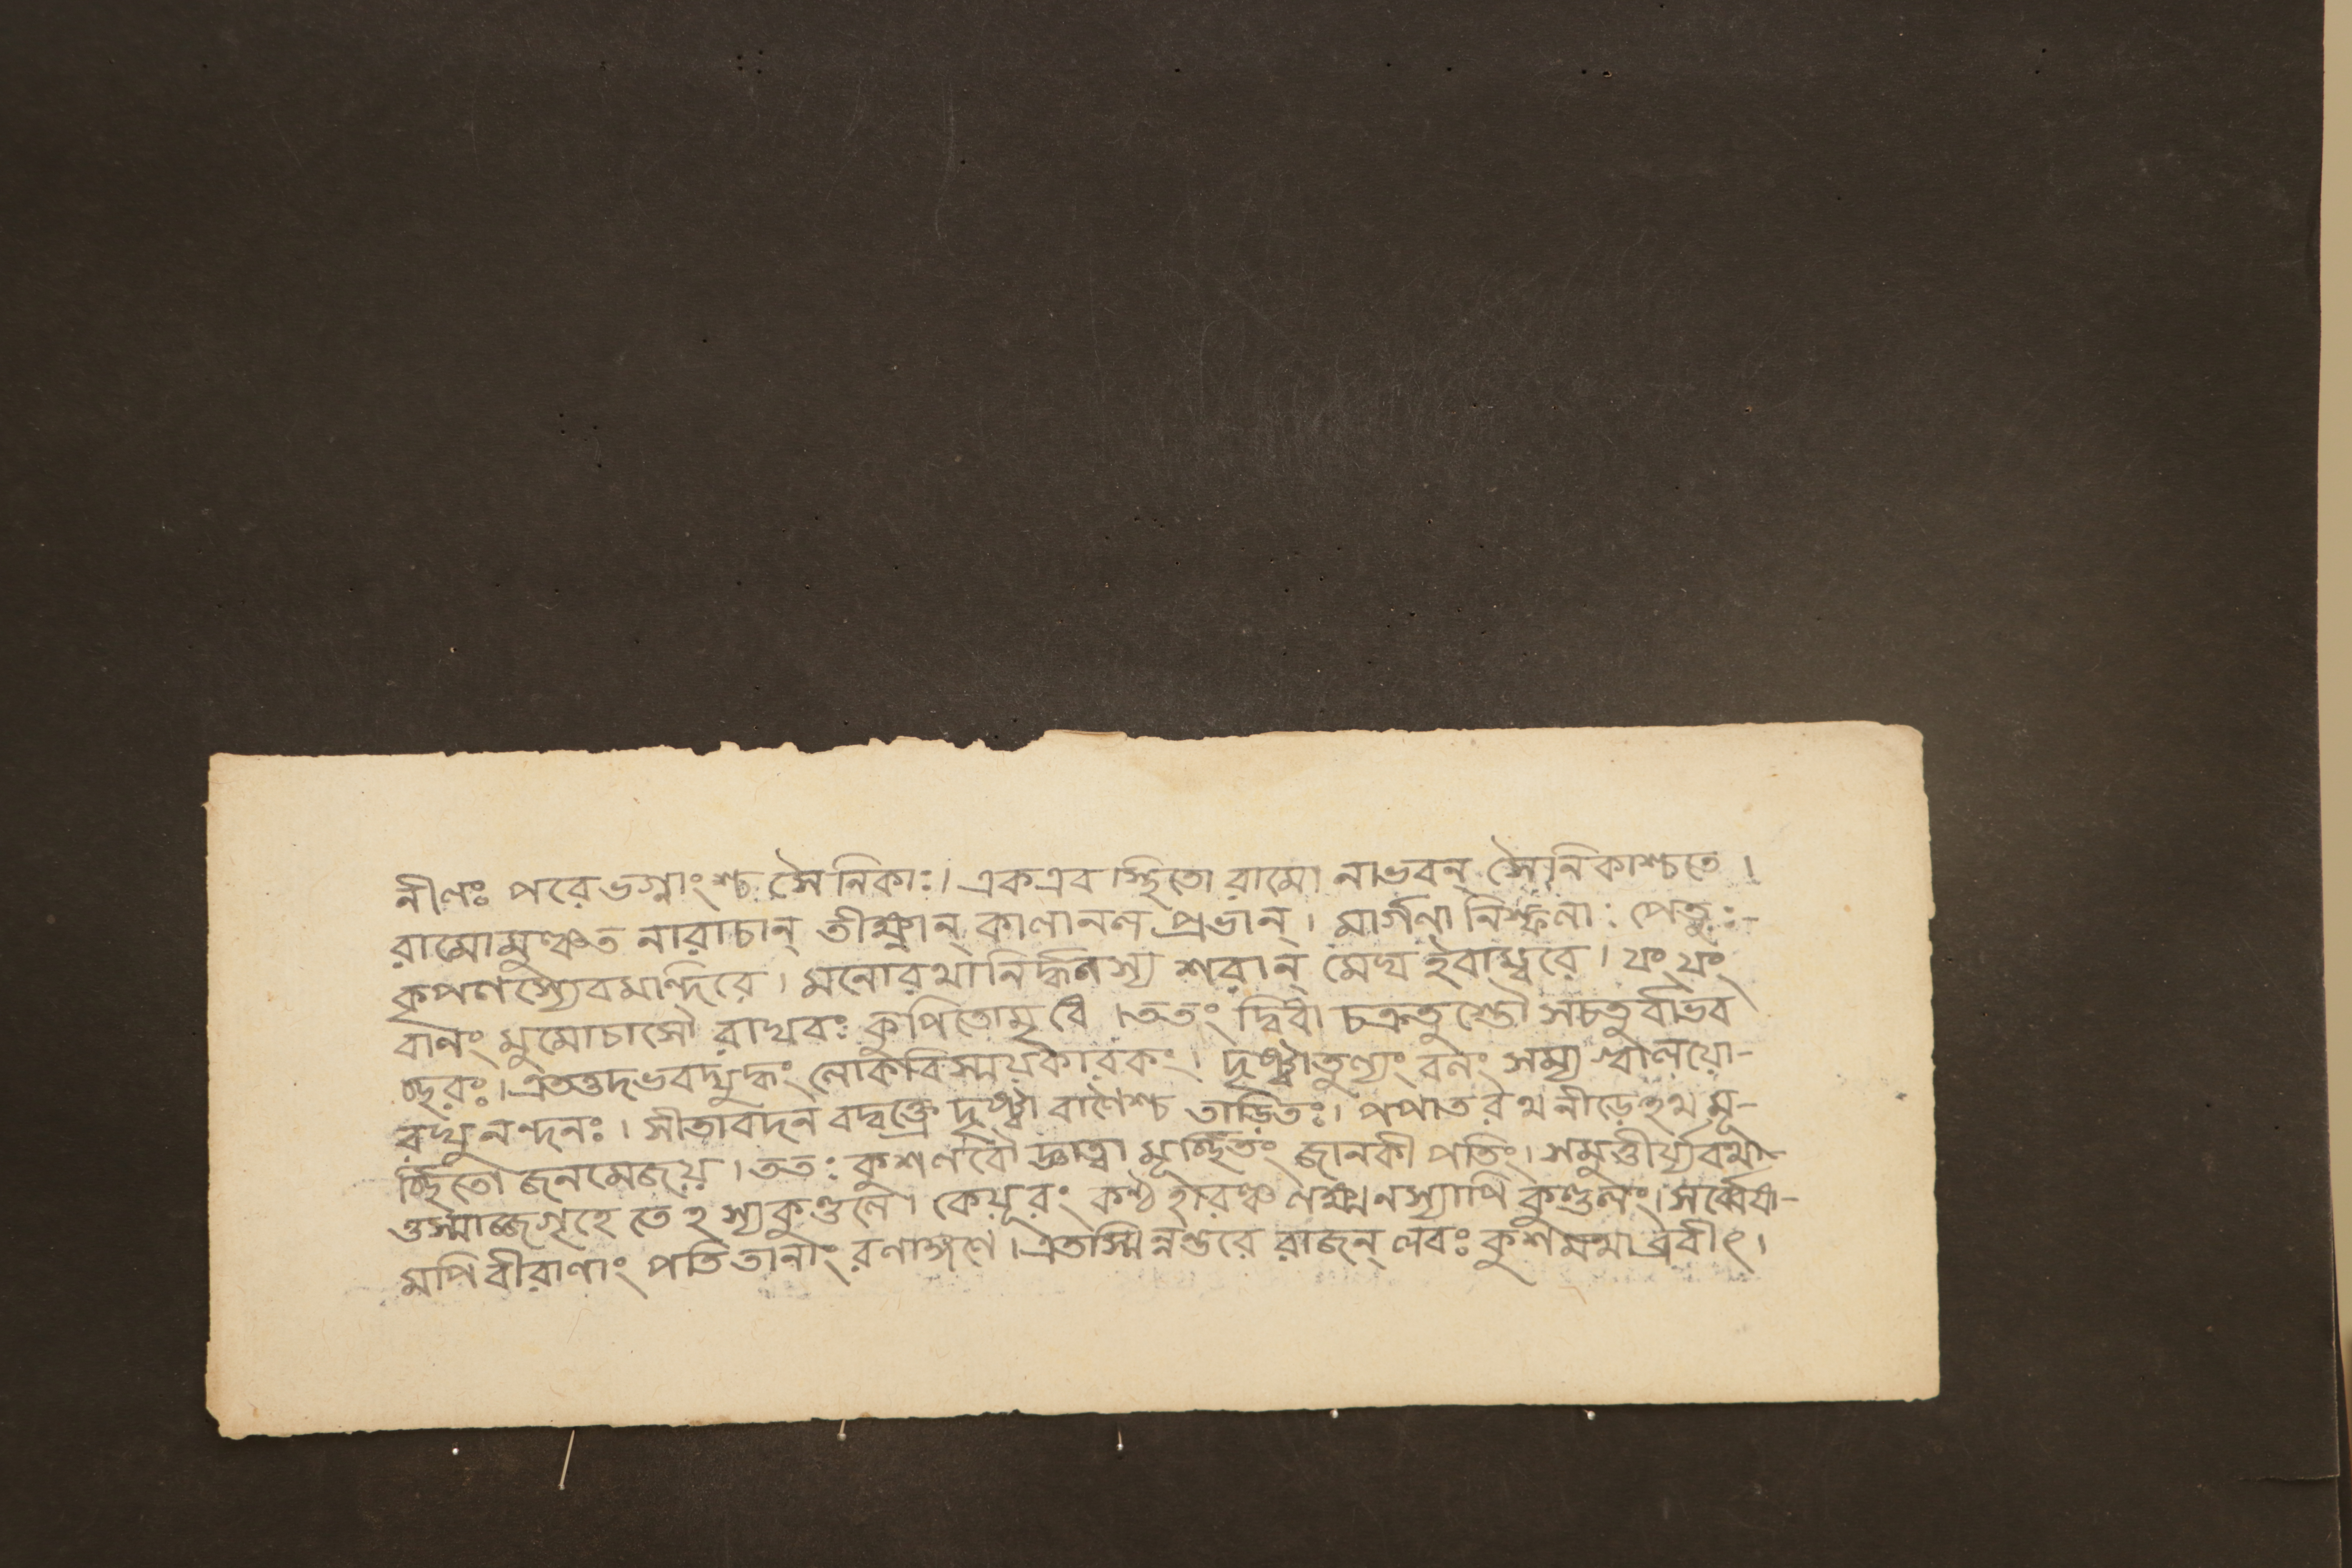 নীলঃ পরে ভগ্নাংশ্চ সৈনিকাঃ। এক এব স্থিতো রামো নাভবন্ সৈনিকাশ্চ তে।
রামোমুঞ্চত নারাচান্ তীক্ষ্ণান্ কালানল প্রভান্। মার্গণা নিষ্ফলাঃ পেতুঃ-
কৃপণস্যেব মন্দিরে। মনোরথা নির্দ্ধনস্য শরান্ মেঘ ইবাম্বরে। যং যং
বানং মুমোচাসৌ রাঘবঃ কুপিতোমৃধে। ততং দ্বিধা চক্রতুস্তৌ স চতুর্ধাভব
চ্ছরঃ। এতত্তদভবদ্যুদ্ধং লোকবিস্ময়কারকং। দৃষ্ট্বাতুল্যং বলং সম্য বালয়ো-
রঘুনন্দনঃ। সীতাবদন বদ্বক্ত্রে দৃষ্ট্বা বাণৈশ্চ তাড়িতঃ। পপাত রথনীড়েঽথ মূ-
র্চ্ছিতো জনমেজয়। ততঃ কুশলবৌ জ্ঞাত্বা মূর্চ্ছিতং জানকী পতিং। সমুত্তীর্য্য রথা-
ত্তস্মাজ্জগৃহেতেঽস্য কুণ্ডলে। কেয়ূরং কণ্ঠহারঞ্চ লক্ষ্মনস্যাপি কুণ্ডলং। সর্ব্বেষা-
মপি বীরাণাং পতিতানাং রণাঙ্গণে। এতস্মিন্নন্তরে রাজন্ লবঃ কুশমথাব্রবীৎ।